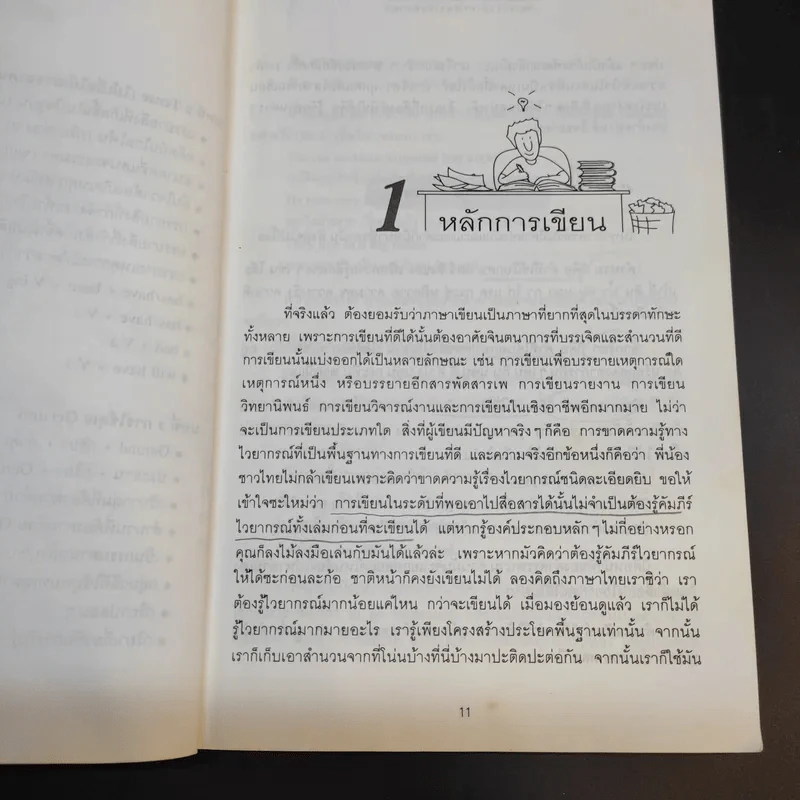 1
หลักการเขียน
ที่จริงแล้ว ต้องยอมรับว่าภาษาเขียนเป็นภาษาที่ยากที่สุดในบรรดาทักษะ
ทั้งหลาย เพราะการเขียนที่ดีได้นั้นต้องอาศัยจินตนาการที่บรรเจิดและสำนวนที่ดี
การเขียนนั้นแบ่งออกได้เป็นหลายลักษณะ เช่น การเขียนเพื่อบรรยายเหตุการณ์ใด
เหตุการณ์หนึ่ง หรือบรรยายอีกสารพัดสารเพ การเขียนรายงาน การเขียน
วิทยานิพนธ์ การเขียนวิจารณ์งานและการเขียนในเชิงอาชีพอีกมากมาย ไม่ว่า
จะเป็นการเขียนประเภทใด สิ่งที่ผู้เขียนมีปัญหาจริงๆก็คือ การขาดความรู้ทาง
ไวยากรณ์ที่เป็นพื้นฐานทางการเขียนที่ดี และความจริงอีกข้อหนึ่งก็คือว่า พี่น้อง
ชาวไทยไม่กล้าเขียนเพราะคิดว่าขาดความรู้เรื่องไวยากรณ์ชนิดละเอียดยิบ ขอให้
เข้าใจซะใหม่ว่า การเขียนในระดับที่พอเอาไปสื่อสารได้นั้นไม่จำเป็นต้องรู้คัมภีร์
ไวยากรณ์ทั้งเล่มก่อนที่จะเขียนได้ แต่หากรู้องค์ประกอบหลักๆไม่กี่อย่างหรอก
คุณก็ลงไม้ลงมือเล่นกับมันได้แล้วล่ะ เพราะหากมัวคิดว่าต้องรู้คัมภีร์ไวยากรณ์
ให้ได้ซะก่อนละก้อ ชาติหน้าก็คงยังเขียนไม่ได้ ลองคิดถึงภาษาไทยเราซิว่า เรา
ต้องรู้ไวยากรณ์มากน้อยแค่ไหน กว่าจะเขียนได้ เมื่อมองย้อนดูแล้ว เราก็ไม่ได้
รู้ไวยากรณ์มากมายอะไร เรารู้เพียงโครงสร้างประโยคพื้นฐานเท่านั้น จากนั้น
เราก็เก็บเอาสำนวนจากที่โน่นบ้างที่นี่บ้างมาปะติดปะต่อกัน จากนั้นเราก็ใช้มัน
11